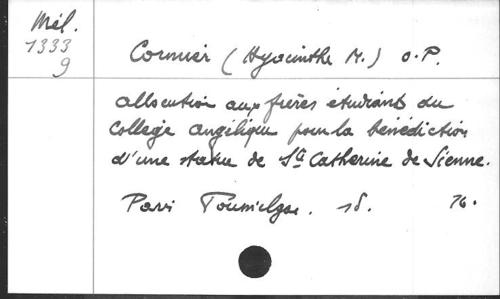 Mél.
1333
9
Cormier (Hyacinthe M.) O.P.
allocution aux frères étudiants du
collège angélique pour la bénédiction
d'une statue de Ste Catherine de Sienne.
Paris 16.